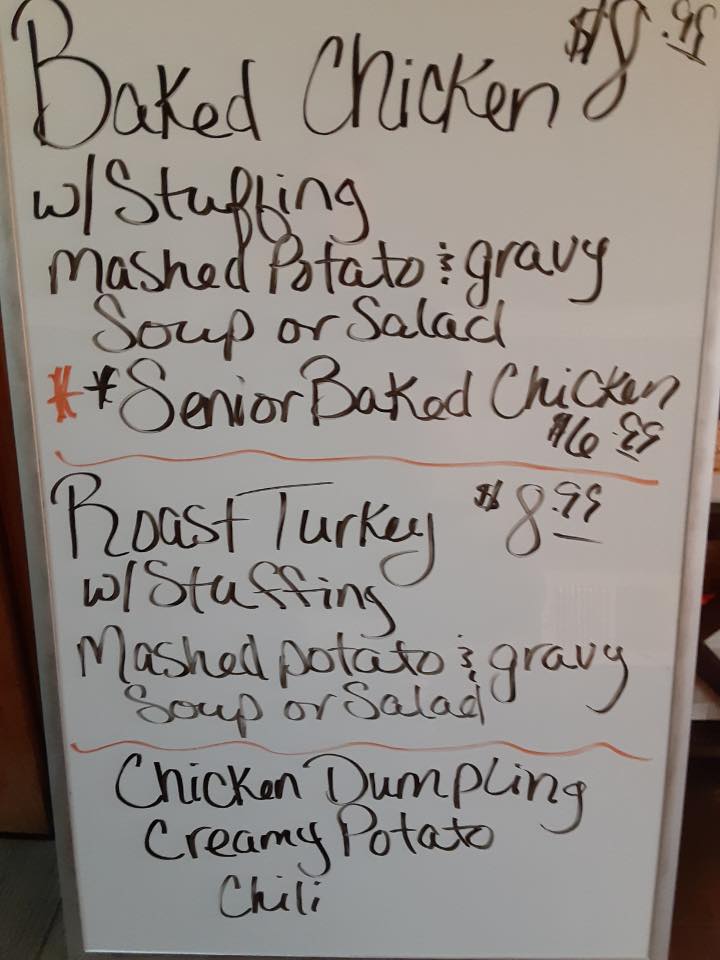 Baked Chicken $8.99
w/Stuffing
Mashed Potato & gravy
Soup or Salad
**Senior Baked Chicken
$6.99
Roast Turkey $8.99
w/Stuffing
Mashed potato & gravy
Soup or Salad
Chicken Dumpling
Creamy Potato
Chili